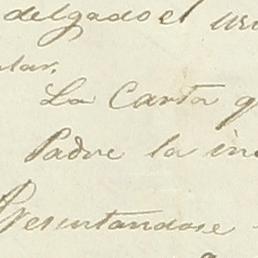 delgado el
lar.
La Carta q
Padre la in
Presentandose